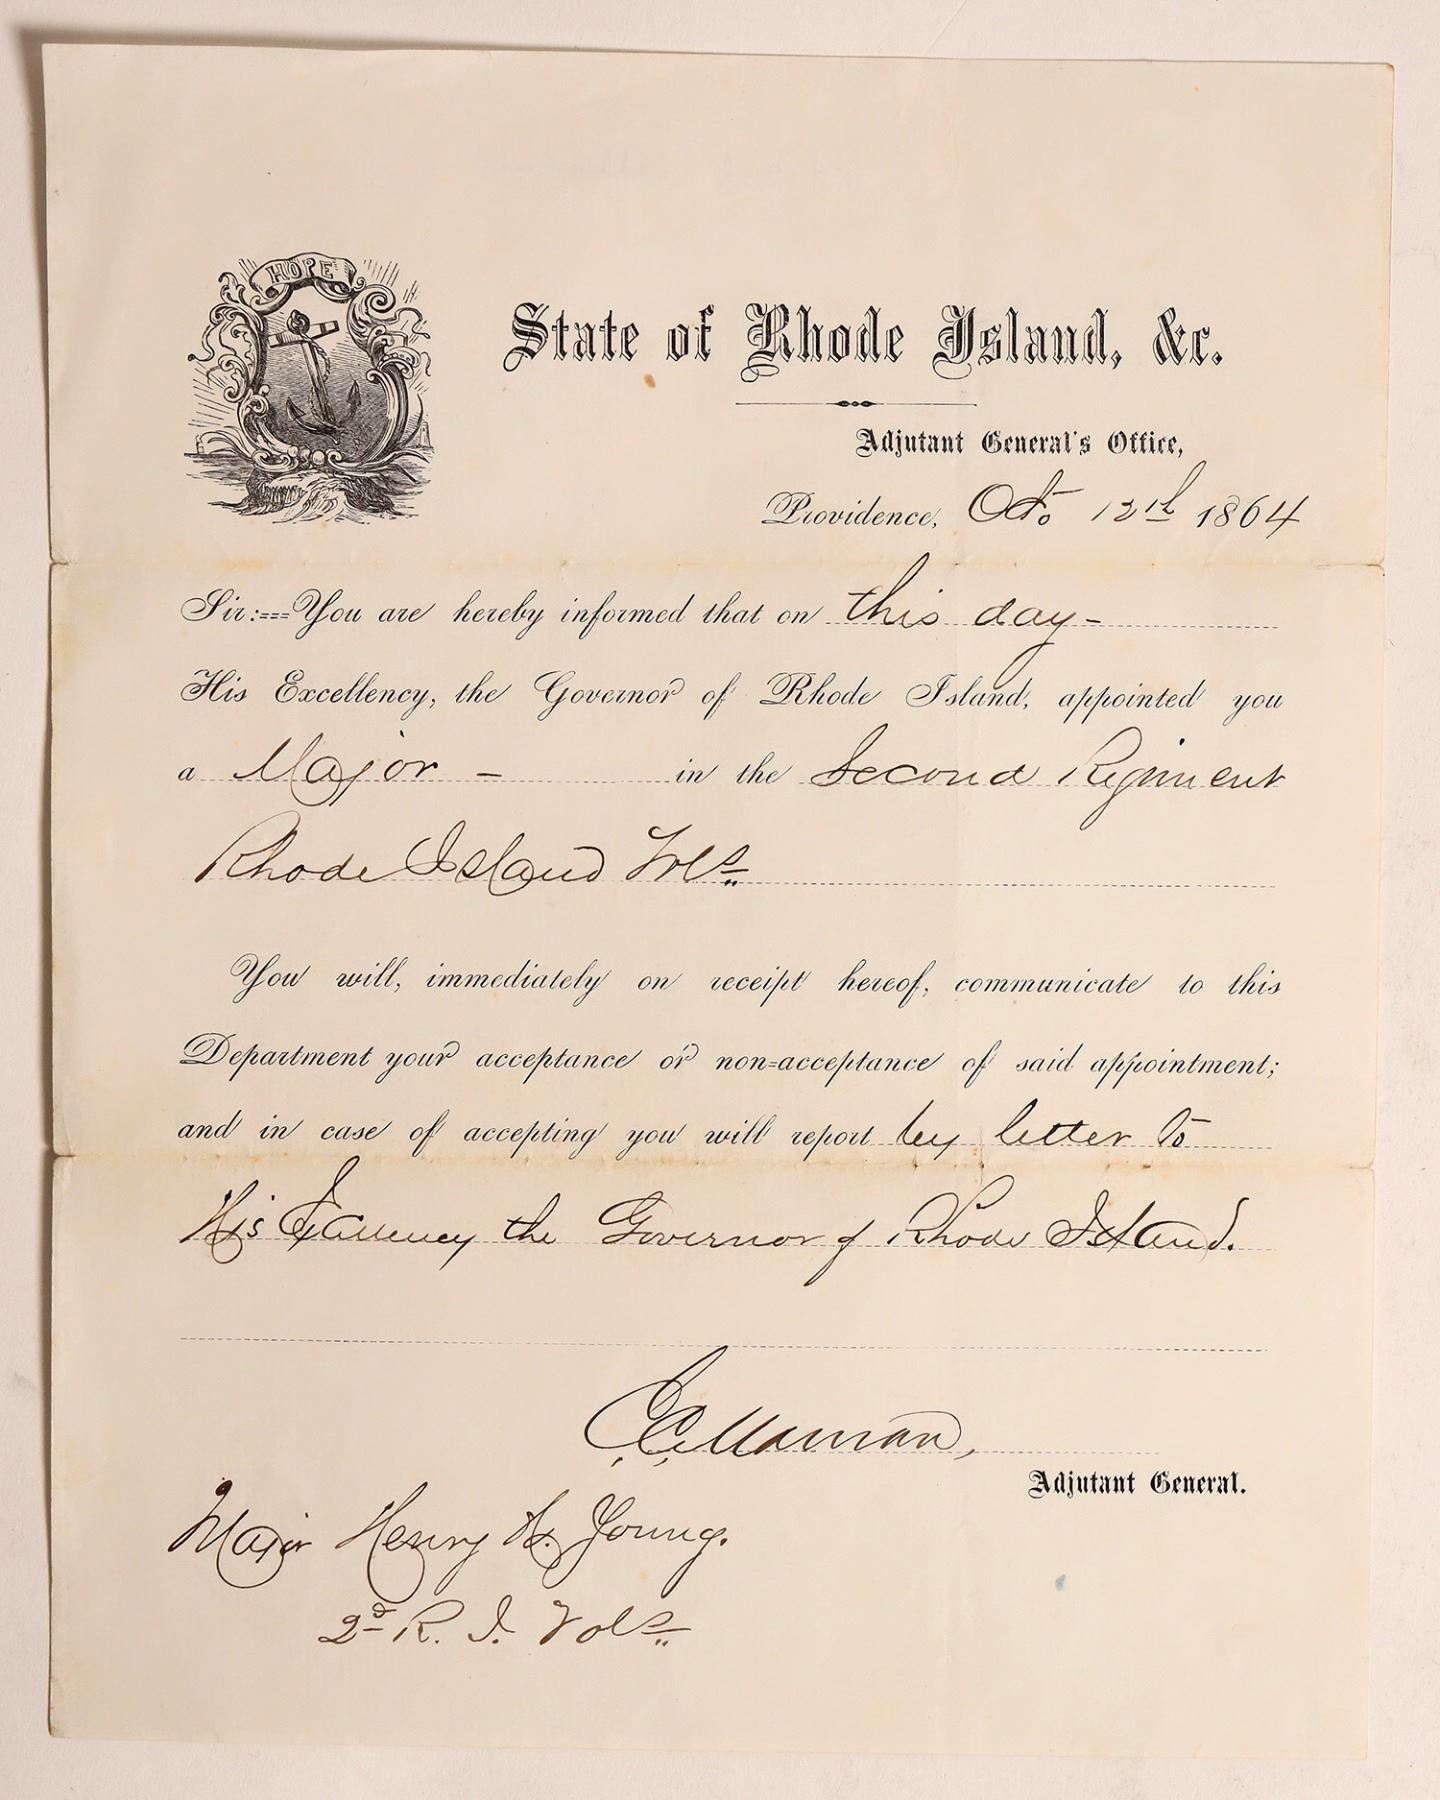 HOPE
State of Rhode Island, &c.
Adjutant General's Office,
Providence, Oct. 12th 1864
Sir:=== You are hereby informed that on this day -
His Excellency, the Governor of Rhode Island, appointed you
a Major - in the Second Regiment
Rhode Island Vols.
You will, immediately on receipt hereof, communicate to this
Department your acceptance or non=acceptance of said appointment;
and in case of accepting you will report by letter to
His Excellency the Governor of Rhode Island.
Adjutant General.
Major Henry H. Young.
2d R. I. Vols.